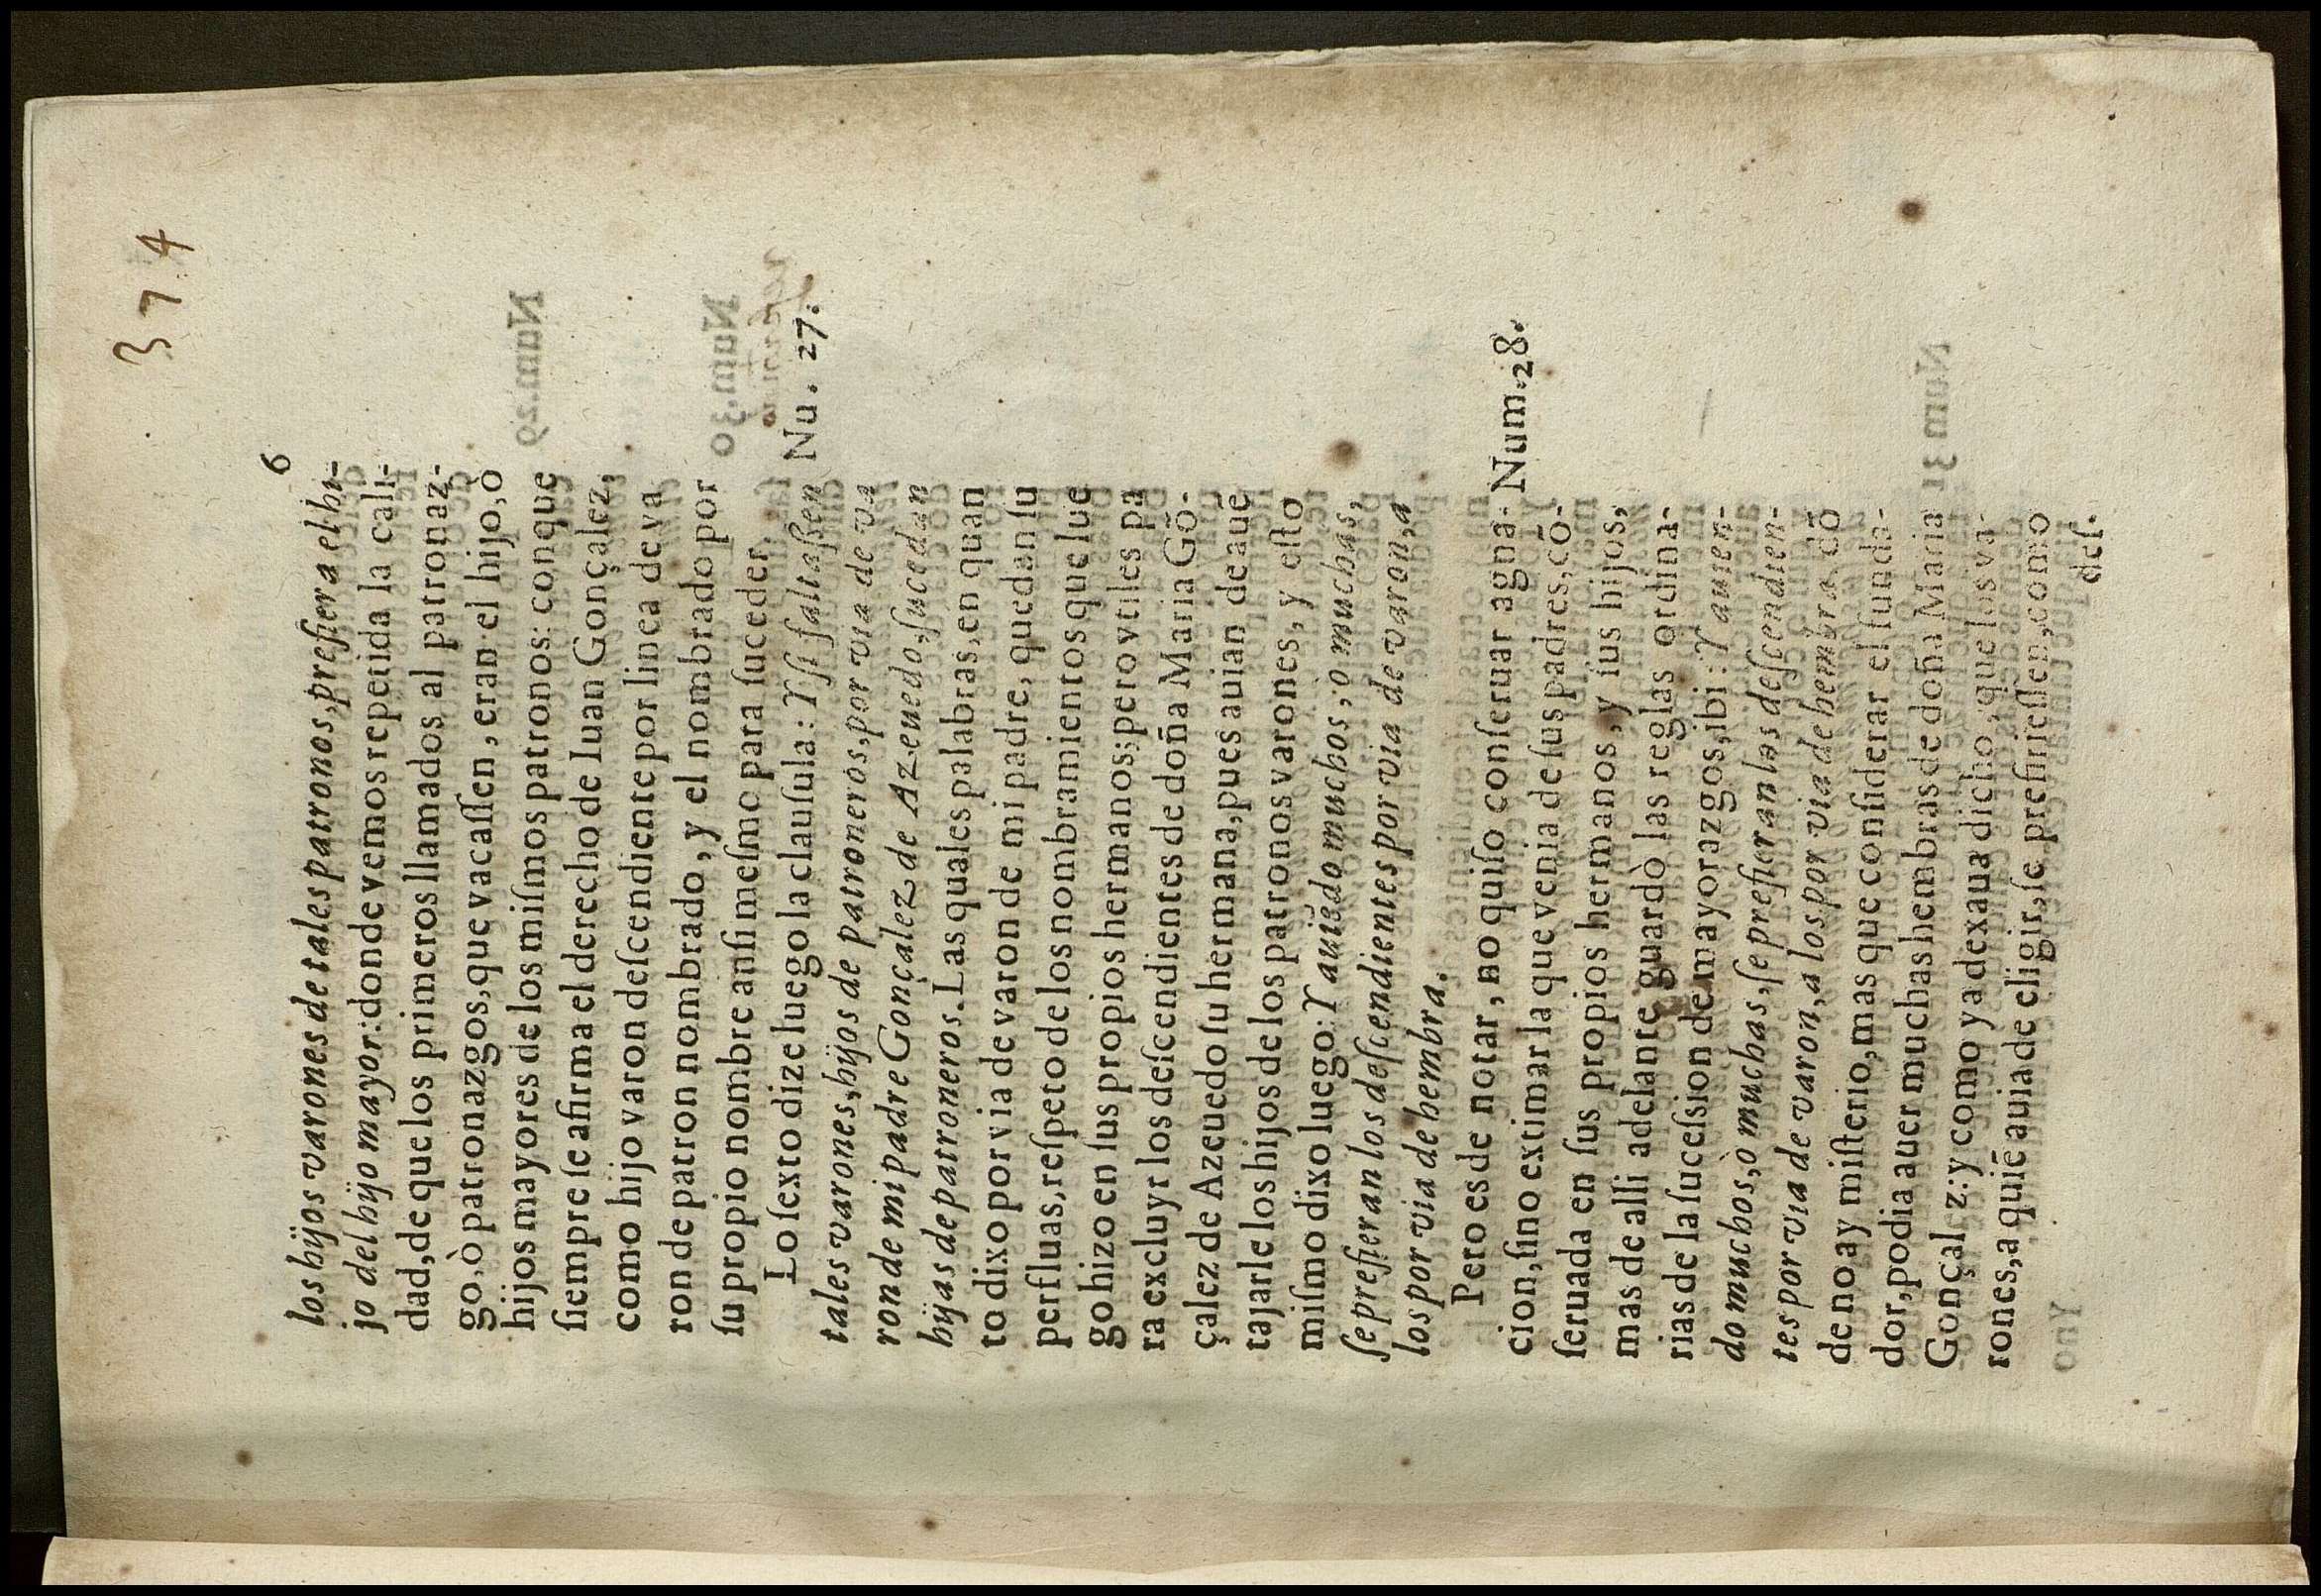 374
6
los hijos varones de tales patronos, prefiera el hi-
jo del hijo mayor: donde vemos repetida la cali-
dad, de que los primeros llamados al patronaz-
go, ò patronazgos, que vacaſſen, eran el hijo, ò
hijos mayores de los miſmos patronos: con que
ſiempre ſe afirma el derecho de Iuan Gonçalez,
como hijo varon deſcendiente por linea de va
ron de patron nombrado, y el nombrado por
ſu propio nombre anſi meſmo para ſuceder.
Lo ſexto dize luego la clauſula: Y ſi faltaßen
Nu. 27.
tales varones, hijos de patroneros, por via de va
ron de mi padre Gonçalez de Azeuedo, ſucedan
hijas de patroneros. Las quales palabras, en quan
to dixo por via de varon de mi padre, quedan ſu
perfluas, reſpeto de los nombramientos que lue
go hizo en ſus propios hermanos; pero vtiles pa
ra excluyr los deſcendientes de doña Maria Gõ-
çalez de Azeuedo ſu hermana, pues auian de auẽ
tajarle los hijos de los patronos varones, y eſto
miſmo dixo luego: Y auiẽdo muchos, o muchas,
ſe prefieran los deſcendientes por via de varon, a
los por via de hembra.
Pero es de notar, no quiſo conſeruar agna-
Num. 28.
cion, ſino extimar la que venia de ſus padres, cõ-
ſeruada en ſus propios hermanos, y ſus hijos,
mas de alli adelante guardò las reglas ordina-
rias de la ſuceſsion de mayorazgos, ibi: Y auien-
do muchos, ò muchas, ſe prefieran los deſcendien-
tes por via de varon, a los por via de hembra. dõ
de no ay miſterio, mas que conſiderar el funda-
dor, podia auer muchas hembras de doña Maria
Gonçal z: y como ya dexaua dicho, que los va-
rones, a quiẽ auia de eligir, ſe prefirieſſen, como
deſ-